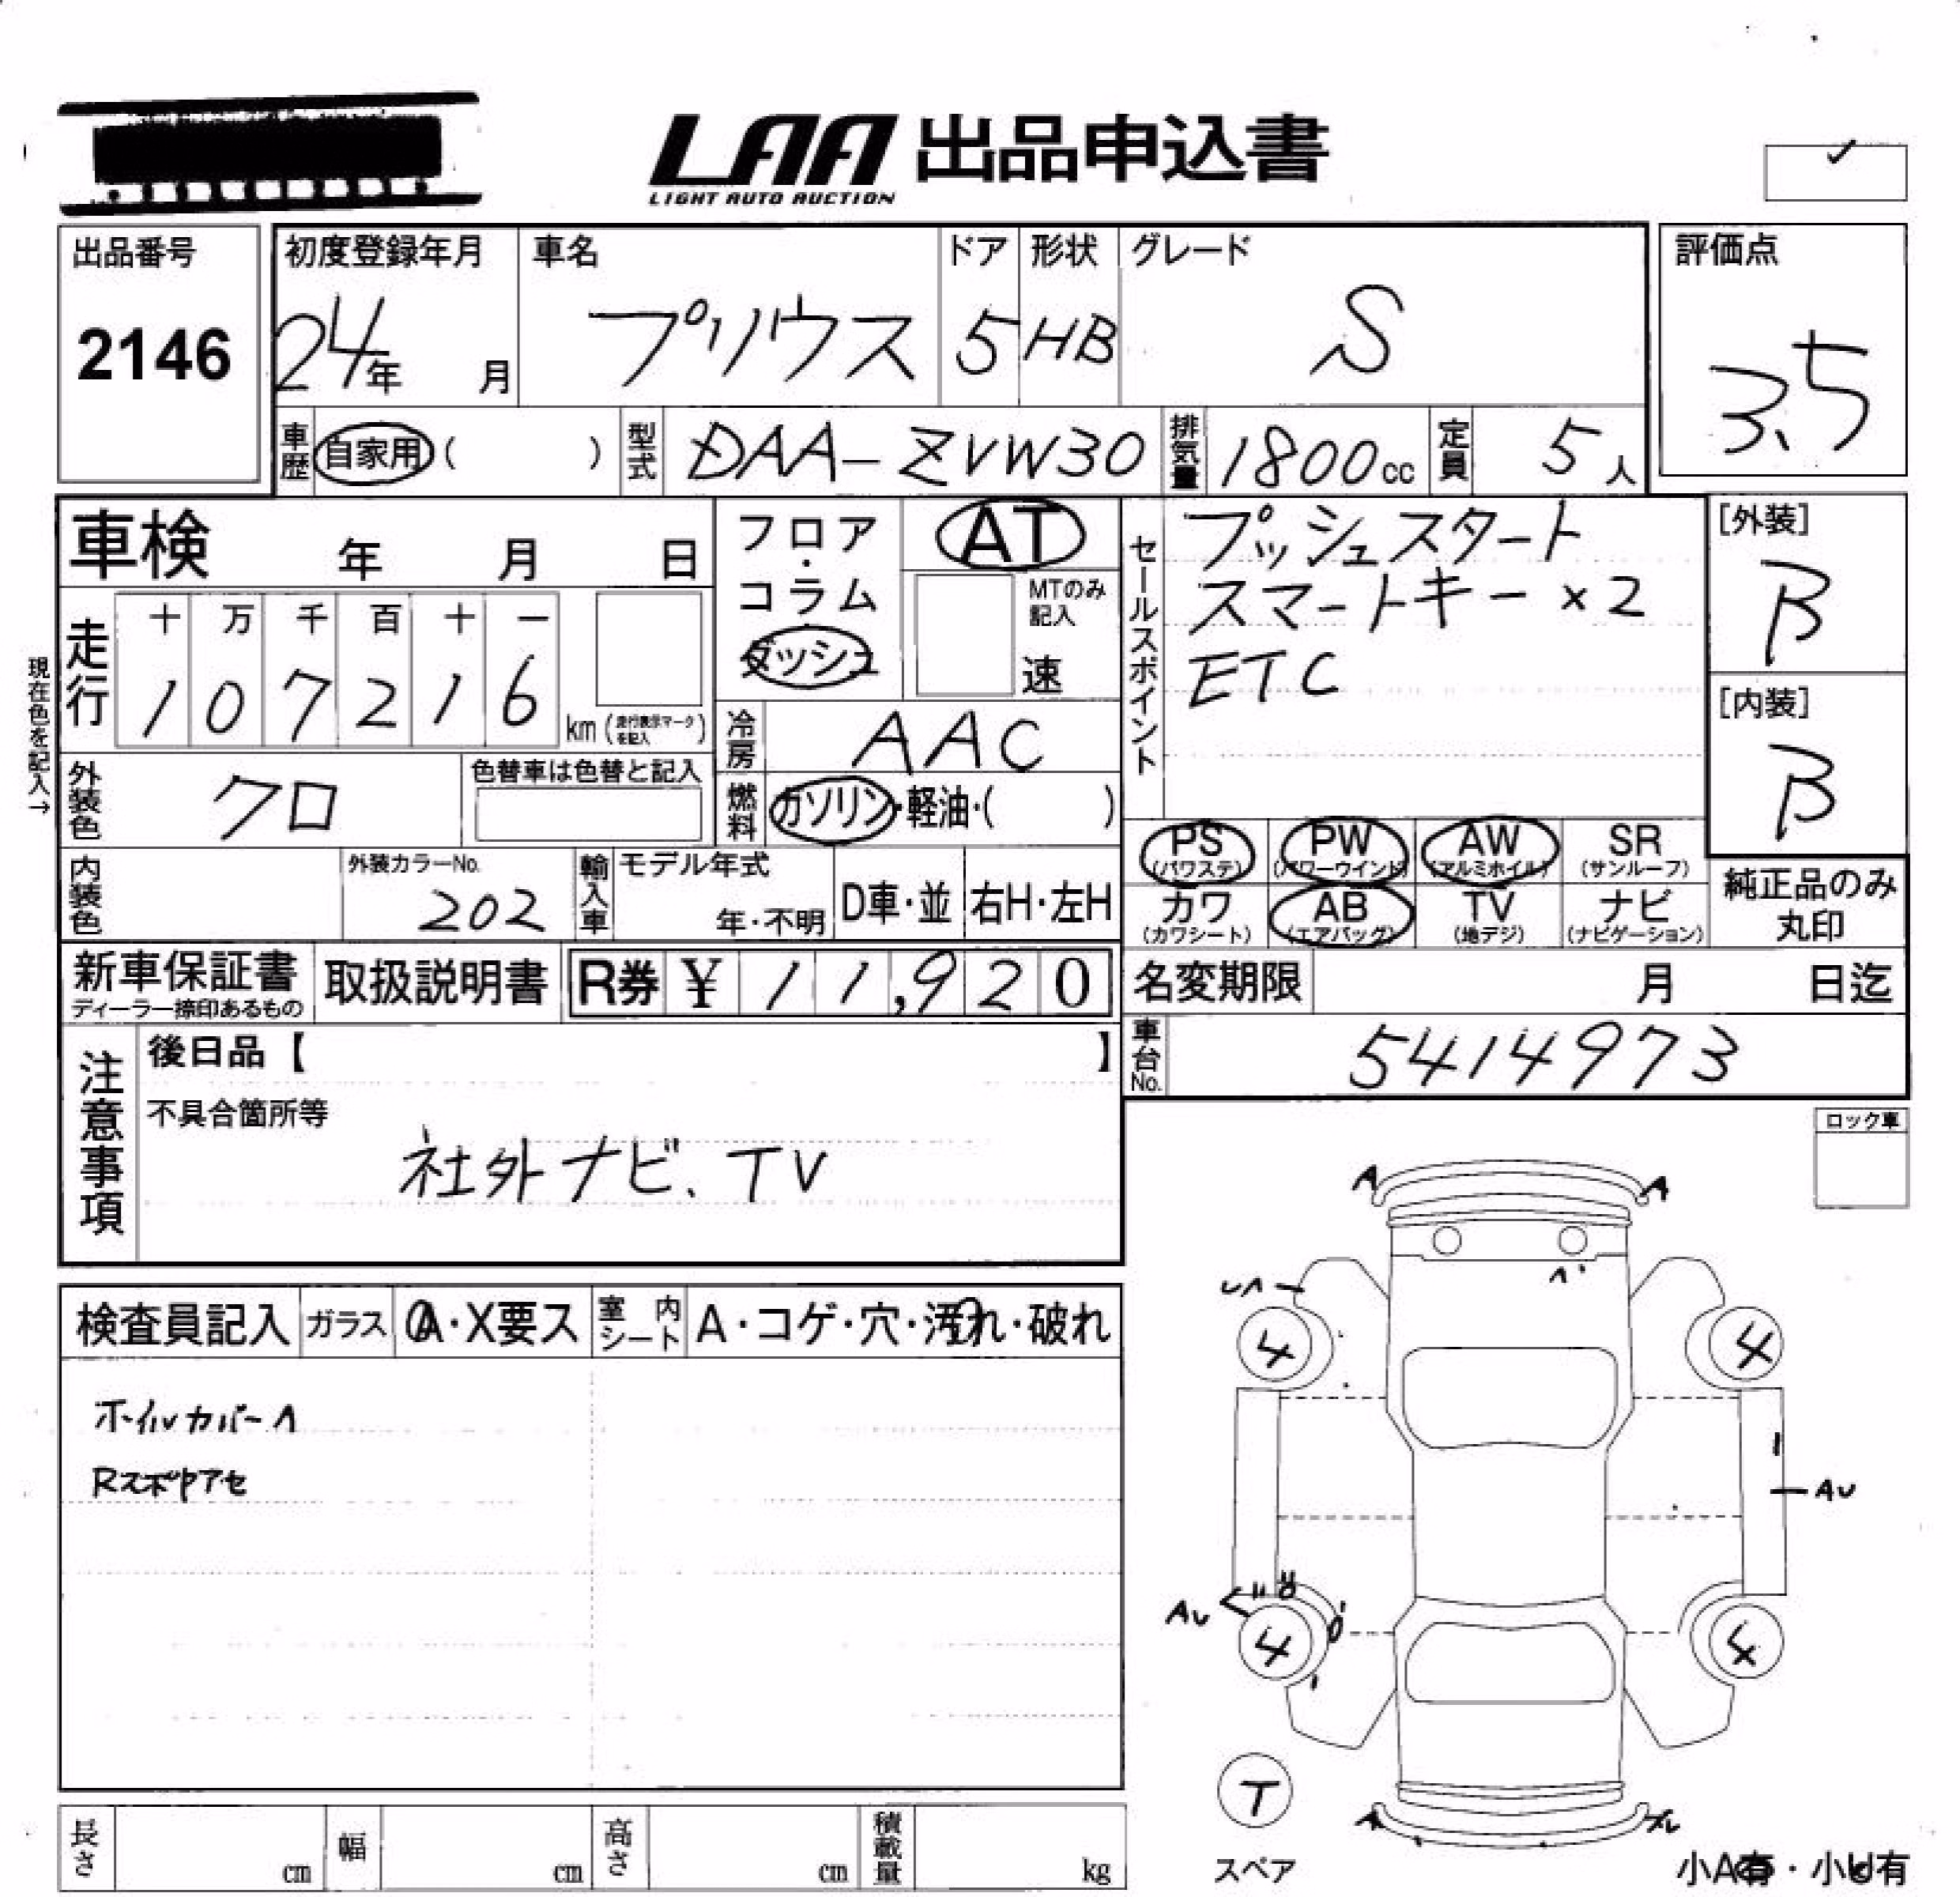 LAA 出品申込書
LIGHT AUTO AUCTION
出品番号
2146
初度登録年月
24年 月
車名
プリウス
ドア
5
形状
HB
グレード
S
評価点
3.5
車歴 自家用 ( )
型式 DAA-ZVW30
排気量 1800 cc
定員 5 人
車検 年 月 日
フロア・コラム
ダッシュ
AT
MTのみ記入
速
現在色を記入→
走行
十 万 千 百 十 一
1 0 7 2 1 6
km (走行表示マークを記入)
冷房 AAC
外装色 クロ
色替車は色替と記入
燃料 ガソリン・軽油・( )
セールスポイント
プッシュスタート
スマートキー ×2
ETC
[外装]
B
[内装]
B
PS (パワステ)
PW (パワーウインド)
AW (アルミホイル)
SR (サンルーフ)
カワ (カワシート)
AB (エアバッグ)
TV (地デジ)
ナビ (ナビゲーション)
純正品のみ丸印
内装色
外装カラーNo.
202
輸入車
モデル年式
年・不明
D車・並
右H・左H
新車保証書
ディーラー捺印あるもの
取扱説明書
R券 ¥ 11,920
名変期限 月 日迄
車台No. 5414973
注意事項
後日品【 】
不具合箇所等
社外ナビ、TV
ロック車
検査員記入
ガラス
A・X要ス
室内シート
A・コゲ・穴・汚れ・破れ
ホイルカバーA
A
A
UA
4
4
AU
AU
4
4
T
スペア
A
小A有・小U有
長さ cm
幅 cm
高さ cm
積載量 kg